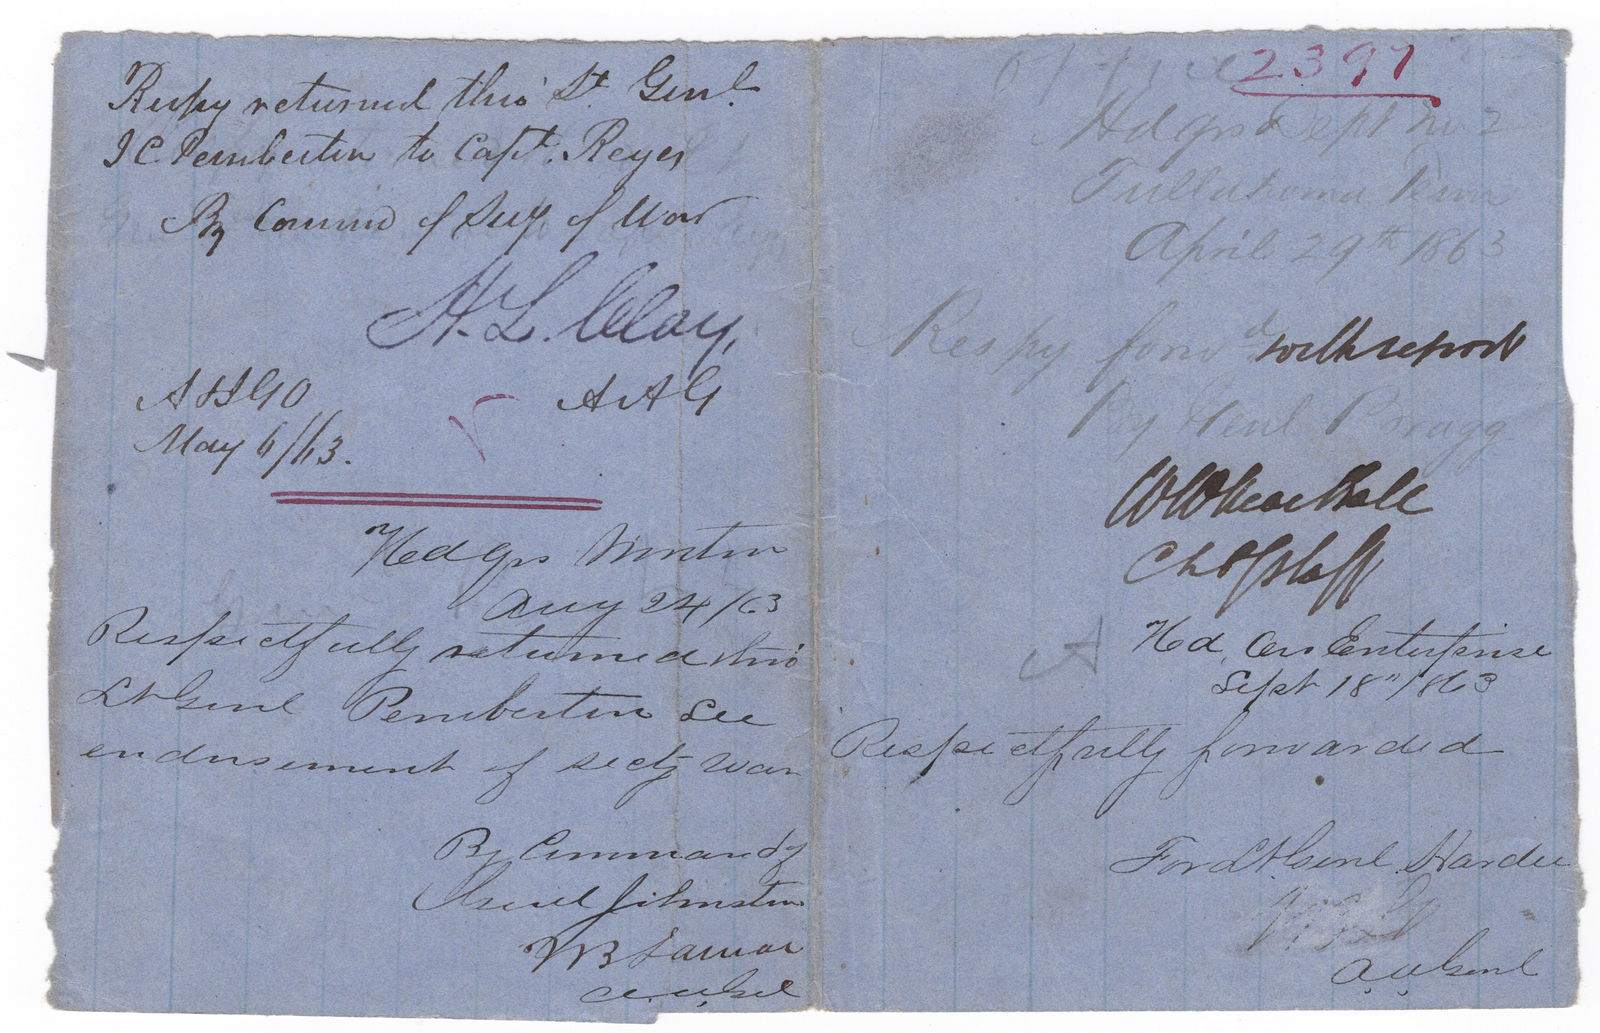 Respy returned thro' Lt. Genl.
J C Pemberton to Capt. Reyes
By Comm'd of Secy of War
H. L. Clay,
A & I G O
A A G
May 6/63.
Hed Qrs Morton
Aug 24/63
Respectfully returned thro
Lt Genl Pemberton See
endorsement of Secty War
By Command of
Genl Johnston
A A Genl
2397
Hd qrs Dept No 2
Tullahoma Tenn
April 29th 1863
Respy forwd with report
By Genl Bragg
W W Mackall
Ch of Staff
Hed Qrs Enterprise
Sept 18" 1863
Respectfully forwarded
For Lt Genl Hardee
A. A. Genl